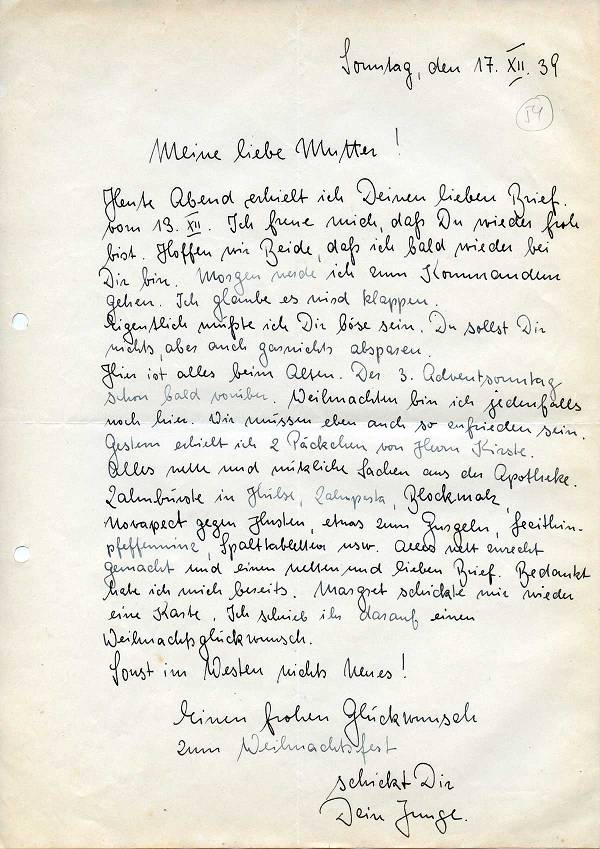 Sonntag, den 17. XII. 39
54
Meine liebe Mutter!
Heute Abend erhielt ich Deinen lieben Brief.
vom 13. XII. Ich freue mich, daß Du wieder froh
bist. Hoffen wir Beide, daß ich bald wieder bei
Dir bin. Morgen werde ich zum Kommandeur
gehen. Ich glaube es wird klappen.
Eigentlich müßte ich Dir böse sein. Du sollst Dir
nichts, aber auch garnichts absparen.
Hier ist alles beim Alten. Der 3. Adventsonntag
schon bald vorüber. Weihnachten bin ich jedenfalls
noch hier. Wir müssen eben auch so zufrieden sein.
Gestern erhielt ich 2 Päckchen von Herrn Kirste.
Alles nette und nützliche Sachen aus der Apotheke.
Zahnbürste in Hülse, Zahnpasta, Blockmalz,
Novapect gegen Husten, etwas zum Gurgeln, Lecithin-
pfefferminz, Spalttabletten usw. Alles nett zurecht
gemacht und einen netten und lieben Brief. Bedankt
habe ich mich bereits. Margret schickte mir wieder
eine Karte. Ich schrieb ihr darauf einen
Weihnachtsglückwunsch.
Sonst im Westen nichts Neues!
Einen frohen Glückwunsch
zum Weihnachtsfest
schickt Dir
Dein Junge.